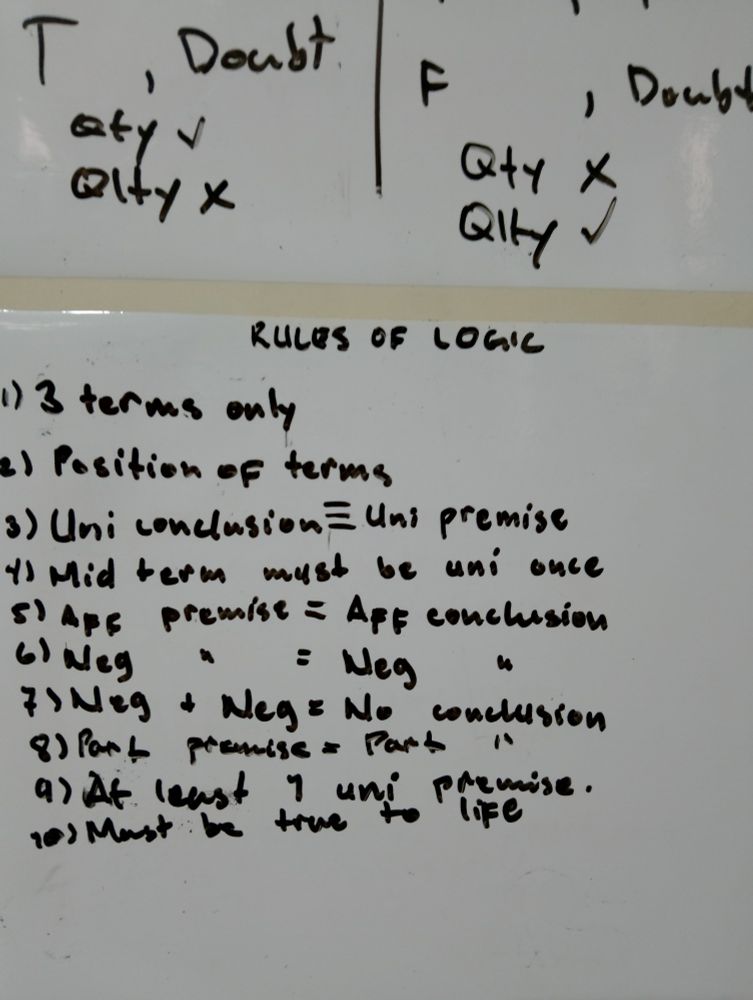 T , Doubt
Qty ✓
Qlty x
F , Doubt
Qty x
Qlty ✓
RULES OF LOGIC
1) 3 terms only
2) Position of terms
3) Uni conclusion ≡ Uni premise
4) Mid term must be uni once
5) Aff premise = Aff conclusion
6) Neg " = Neg "
7) Neg + Neg = No conclusion
8) Part premise = Part "
9) At least 1 uni premise.
10) Must be true to life